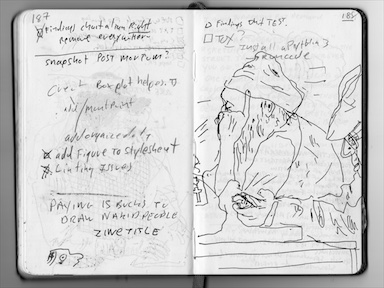 187
Findings chart align Right
remove everywhere
snapshot post mortum?
Creat Boxplot helpers
add/mountPoint
add organize
add Figure to Stylesheet
Linting Issues
PAYING 15 BUCKS TO
DRAW NAKID PEOPLE
ZINE TITLE
188
Findings chart TEST.
TOX?
Install a Python 3